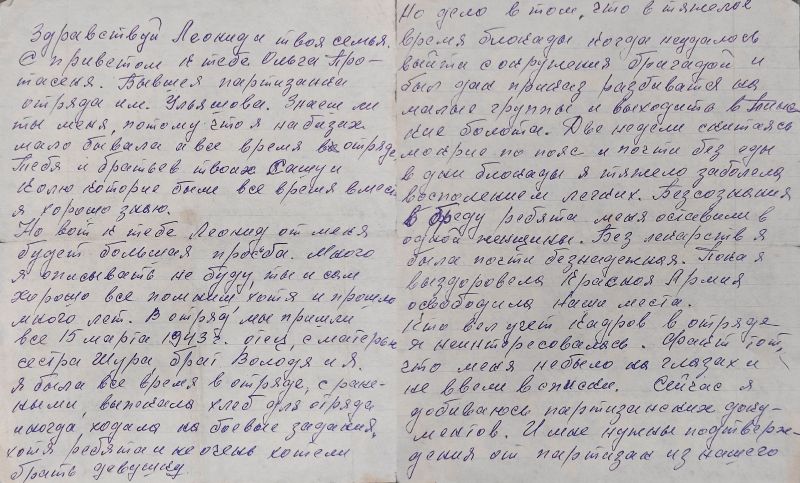 Здравствуй Леонид и твоя семья.
С приветом к тебе Ольга Про-
тасеня. Бывшая партизанка
отряда им. Ульянова. Знаеш ли
ты меня, потому что я на базах
мало бывала а все время в отряде
Тебя и братьев твоих Сашу и
Колю которые были все время вмест
я хорошо знаю.
Но вот к тебе Леонид от меня
будет большая просьба. Много
я описывать не буду, ты и сам
хорошо все помниш, хотя и прошло
много лет. В отряд мы пришли
все 15 марта 1943 г. отец, с матерью
сестра Шура брат Володя и я.
Я была все время в отряде, с ране-
ными, выпекала хлеб для отряда
иногда ходила на боевые задания,
хотя ребята и не очень хотели
брать девушку.
Но дело в том, что в тяжелое
время блокады когда неудалось
выйти с окружения бригадой и
был дан приказ разбиватся на
малые группы и выходить в Пинс
кие болота. Две недели скитаясь
мокрые по пояс и почти без еды
в дни блокады я тяжело заболела
воспалением легких. Без сознания
в бреду ребята меня оставили в
одной женщины. Без лекарств я
была почти безнадежная. Пока я
выздоровела Красная Армия
освободила наши места.
Кто вел учет кадров в отряде
я неинтересовалась. Факт тот,
что меня небыло на глазах и
не ввели в списки. Сейчас я
добиваюсь партизанских доку-
ментов. И мне нужны подтверж-
дения от партизан из нашего